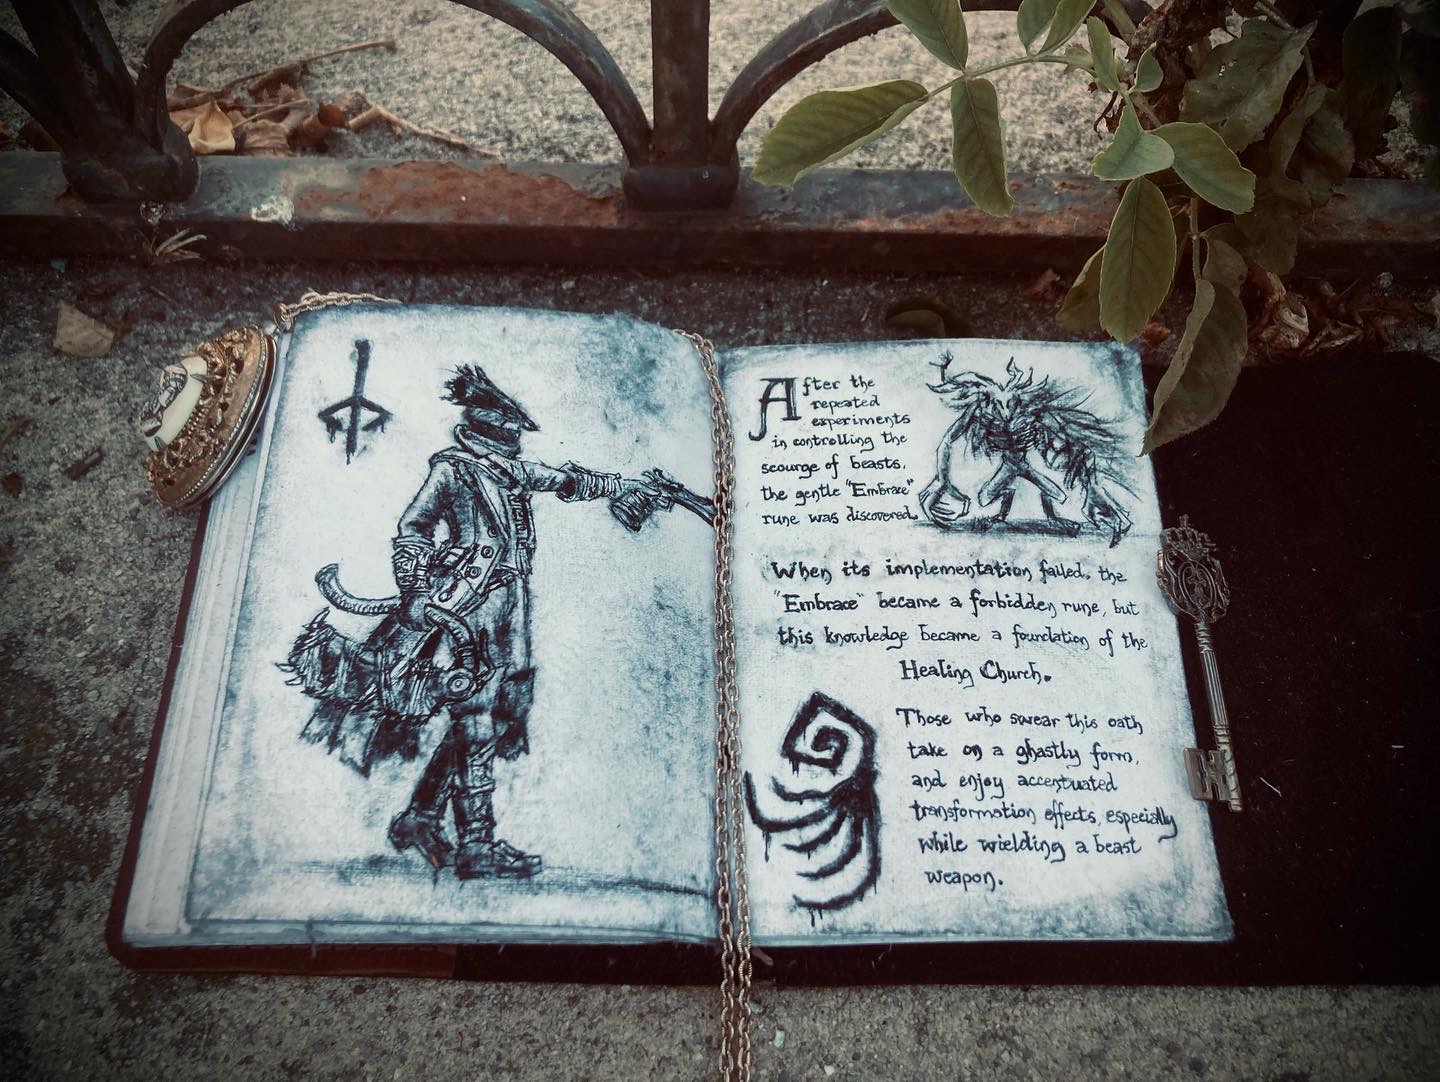 After the
repeated
experiments
in controlling the
scourge of beasts,
the gentle "Embrace"
rune was discovered.
When its implementation failed, the
"Embrace" became a forbidden rune, but
this knowledge became a foundation of the
Healing Church.
Those who swear this oath
take on a ghastly form,
and enjoy accentuated
transformation effects, especially
while wielding a beast
weapon.